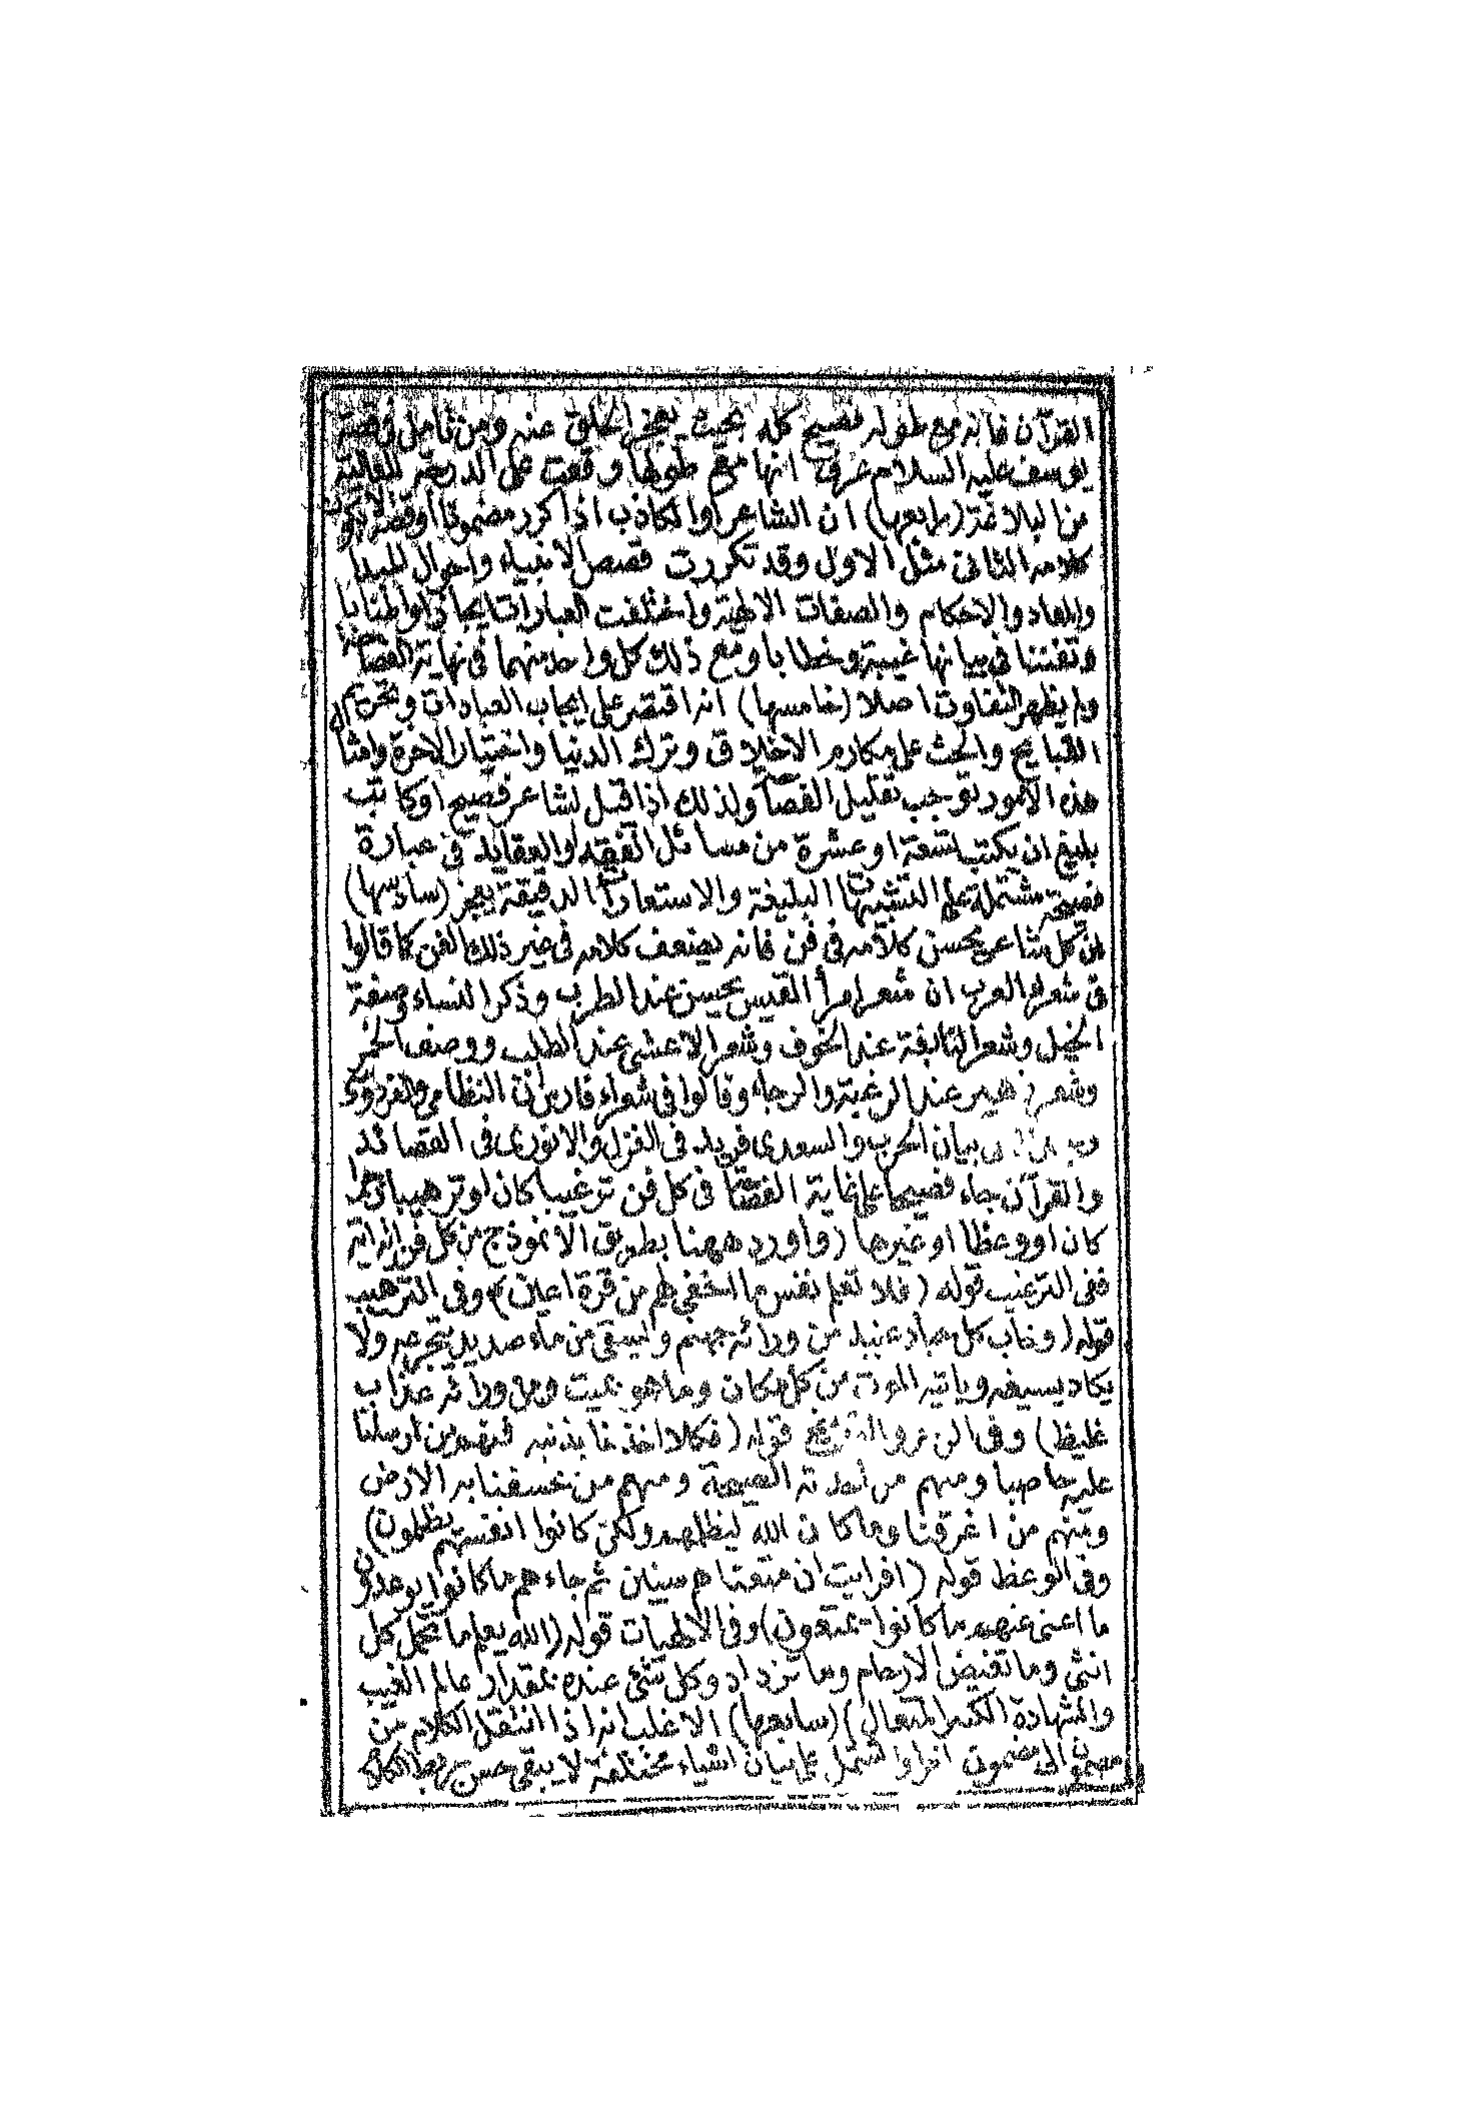 القرآن فانه مع طوله فصيح كله بحيث يعجز الخلق عنه ومن تامل فى قصة
يوسف عليه السلام عرف انها مع طولها وقعت على الدرجة العالية
من البلاغة (رابعها) ان الشاعر او الكاتب اذا كرر مضمونا او قصة لا يكون
كلامه الثانى مثل الاول وقد تكررت قصص الانبياء واحوال المبدا
والمعاد والاحكام والصفات الالهية واختلفت العبارات ايجازا واطنابا
وتفننا فى بيانها غيبة وخطابا ومع ذلك كل واحد منهما فى نهاية الفصاحة
ولم يظهر التفاوت اصلا (خامسها) انه اقتصر على ايجاب العبادات وتحريم
القبايح والحث على مكارم الاخلاق وترك الدنيا واختيار الاخرة وامثال
هذه الامور توجب تقليل الفصاحة ولذلك اذا قيل لشاعر فصيح او كاتب
بليغ ان يكتب تسعة او عشرة من مسائل الفقه او العقايد فى عبارة
فصيحة مشتملة على التشبيهات البليغة والاستعارات الدقيقة يعجز (سادسها)
ان كل شاعر يحسن كلامه فى فن فانه يضعف كلامه فى غير ذلك الفن كما قالوا
فى شعراء العرب ان شعر امرأ القيس يحسن عند الطرب وذكر النساء وصفة
الخيل وشعر النابغة عند الخوف وشعر الاعشى عند الطلب ووصف الخمر
وشعر زهير عند الرغبة والرجاء وقالوا فى شعراء فارس ان النظامى والفردوسى
بيان الحرب والسعدى فريد فى الغزل والانورى فى القصائد
والقرآن جاء فصيحا على غاية الفصاحة فى كل فن ترغيبا كان او ترهيبا زجرا
كان او وعظا او غيرها (واورد ههنا بطريق الانموذج من كل فن اية اية
ففى الترغيب قوله (فلا تعلم نفس ما اخفى لهم من قرة اعين) وفى الترهيب
قوله (وخاب كل جبار عنيد من ورائه جهنم ويسقى من ماء صديد يتجرعه ولا
يكاد يسيغه وياتيه الموت من كل مكان وما هو بميت ومن ورائه عذاب
غليظ) وفى الزجر والتوبيخ قوله (فكلا اخذنا بذنبه فمنهم من ارسلنا
عليه حاصبا ومنهم من اخذته الصيحة ومنهم من خسفنا به الارض
ومنهم من اغرقنا وما كان الله ليظلمهم ولكن كانوا انفسهم يظلمون)
وفى الوعظ قوله (افرايت ان متعناهم سنين ثم جاءهم ما كانوا يوعدون
ما اغنى عنهم ما كانوا يمتعون) وفى الالهيات قوله (الله يعلم ما تحمل كل
انثى وما تغيض الارحام وما تزداد وكل شئ عنده بمقدار عالم الغيب
والشهادة الكبير المتعال) (سابعها) الاغلب انه اذا انتقل الكلام من
مضمون الى مضمون اخر او اشتمل على بيان اشياء مختلفة لا يبقى حسن ربط الكلام